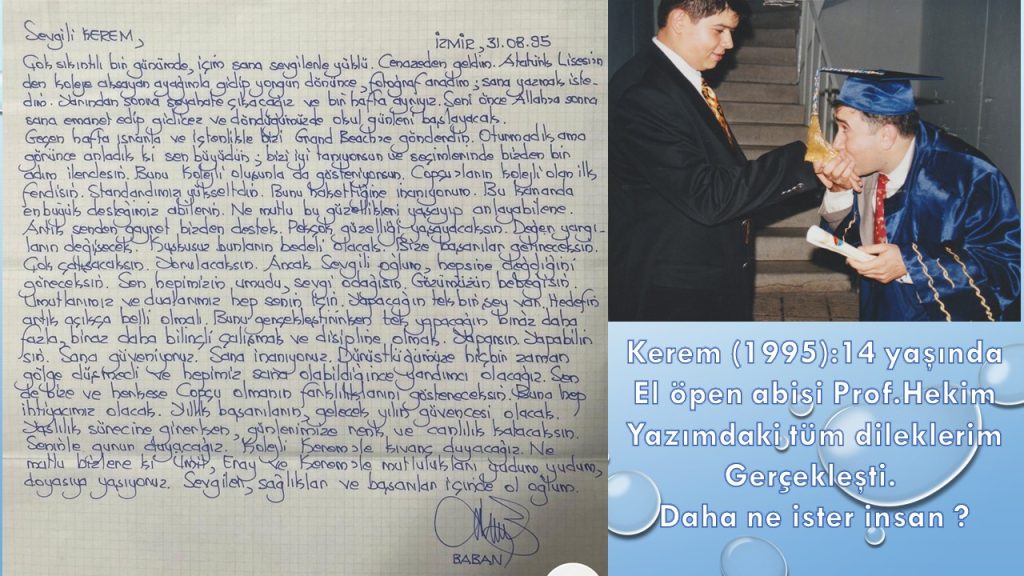 Sevgili KEREM,
İZMİR, 31.08.95
Çok sıkıntılı bir günümde, içim sana sevgilerle yüklü. Cenazeden geldim. Atatürk Lisesin
den koleje aksayan ayağımla gidip yorgun dönünce, fotoğraf aradım; sana yazmak iste-
dim. Yarından sonra seyahate çıkacağız ve bir hafta ayrıyız. Seni önce Allah'a sonra
sana emanet edip gidicez ve döndüğümüzde okul günleri başlayacak.
Geçen hafta ısrarla ve içtenlikle bizi Grand Beach'e gönderdin. Oturmadık ama
görünce anladık ki sen büyüdün; bizi iyi tanıyorsun ve seçimlerinde bizden bir
adım ilerdesin. Bunu kolejli oluşunla da gösteriyorsun. Copçu'ların kolejli olan ilk
ferdisin. Standardımız yükseltdin. Bunu hakettiğine inanıyorum. Bu konanda
en büyük desteğimiz abilerin. Ne mutlu bu güzellikleri yaşayıp anlayabilene.
Artık senden gayret bizden destek. Pekçok güzelliği yaşayacaksın. Değer yargı-
ların değişecek. Kuşkusuz bunların bedeli olacak. Bize başarılar getireceksin.
Çok çalışacaksın. Yorulacaksın. Ancak Sevgili oğlum, hepsine değdiğini
göreceksin. Sen hepimizin umudu, sevgi odağısın. Gözümüzün bebeğisin.
Umutlarımız ve dualarımız hep senin için. Yapacağın tek bir şey var. Hedefin
artık açıkça belli olmalı. Bunu gerçekleştirirken tek yapacağın biraz daha
fazla, biraz daha bilinçli çalışmak ve disipline olmak. Yaparsın. Yapabilir
sin. Sana güveniyoruz. Sana inanıyoruz. Dürüstlüğümüze hiçbir zaman
gölge düşmedi ve hepimiz sana olabildiğince yardımcı olacağız. Sen
de bize ve herkese Copçu olmanın farklılıklarını göstereceksin. Buna hep
ihtiyacımız olacak. Yıllık başarıların, gelecek yılın güvencesi olacak.
Yaşlılık sürecine girerken, günlerimize renk ve canlılık katacaksın.
Seninle gurur duyacağız. Kolejli Kerem'le kıvanç duyacağız. Ne
mutlu bizlere ki Ümit, Eray ve Kerem'le mutlulukları yudum, yudum,
doyasıya yaşıyoruz. Sevgiler, sağlıklar ve başarılar içinde ol oğlum.
BABAN
Kerem (1995):14 yaşında
El öpen abisi Prof.Hekim
Yazımdaki tüm dileklerim
Gerçekleşti.
Daha ne ister insan ?